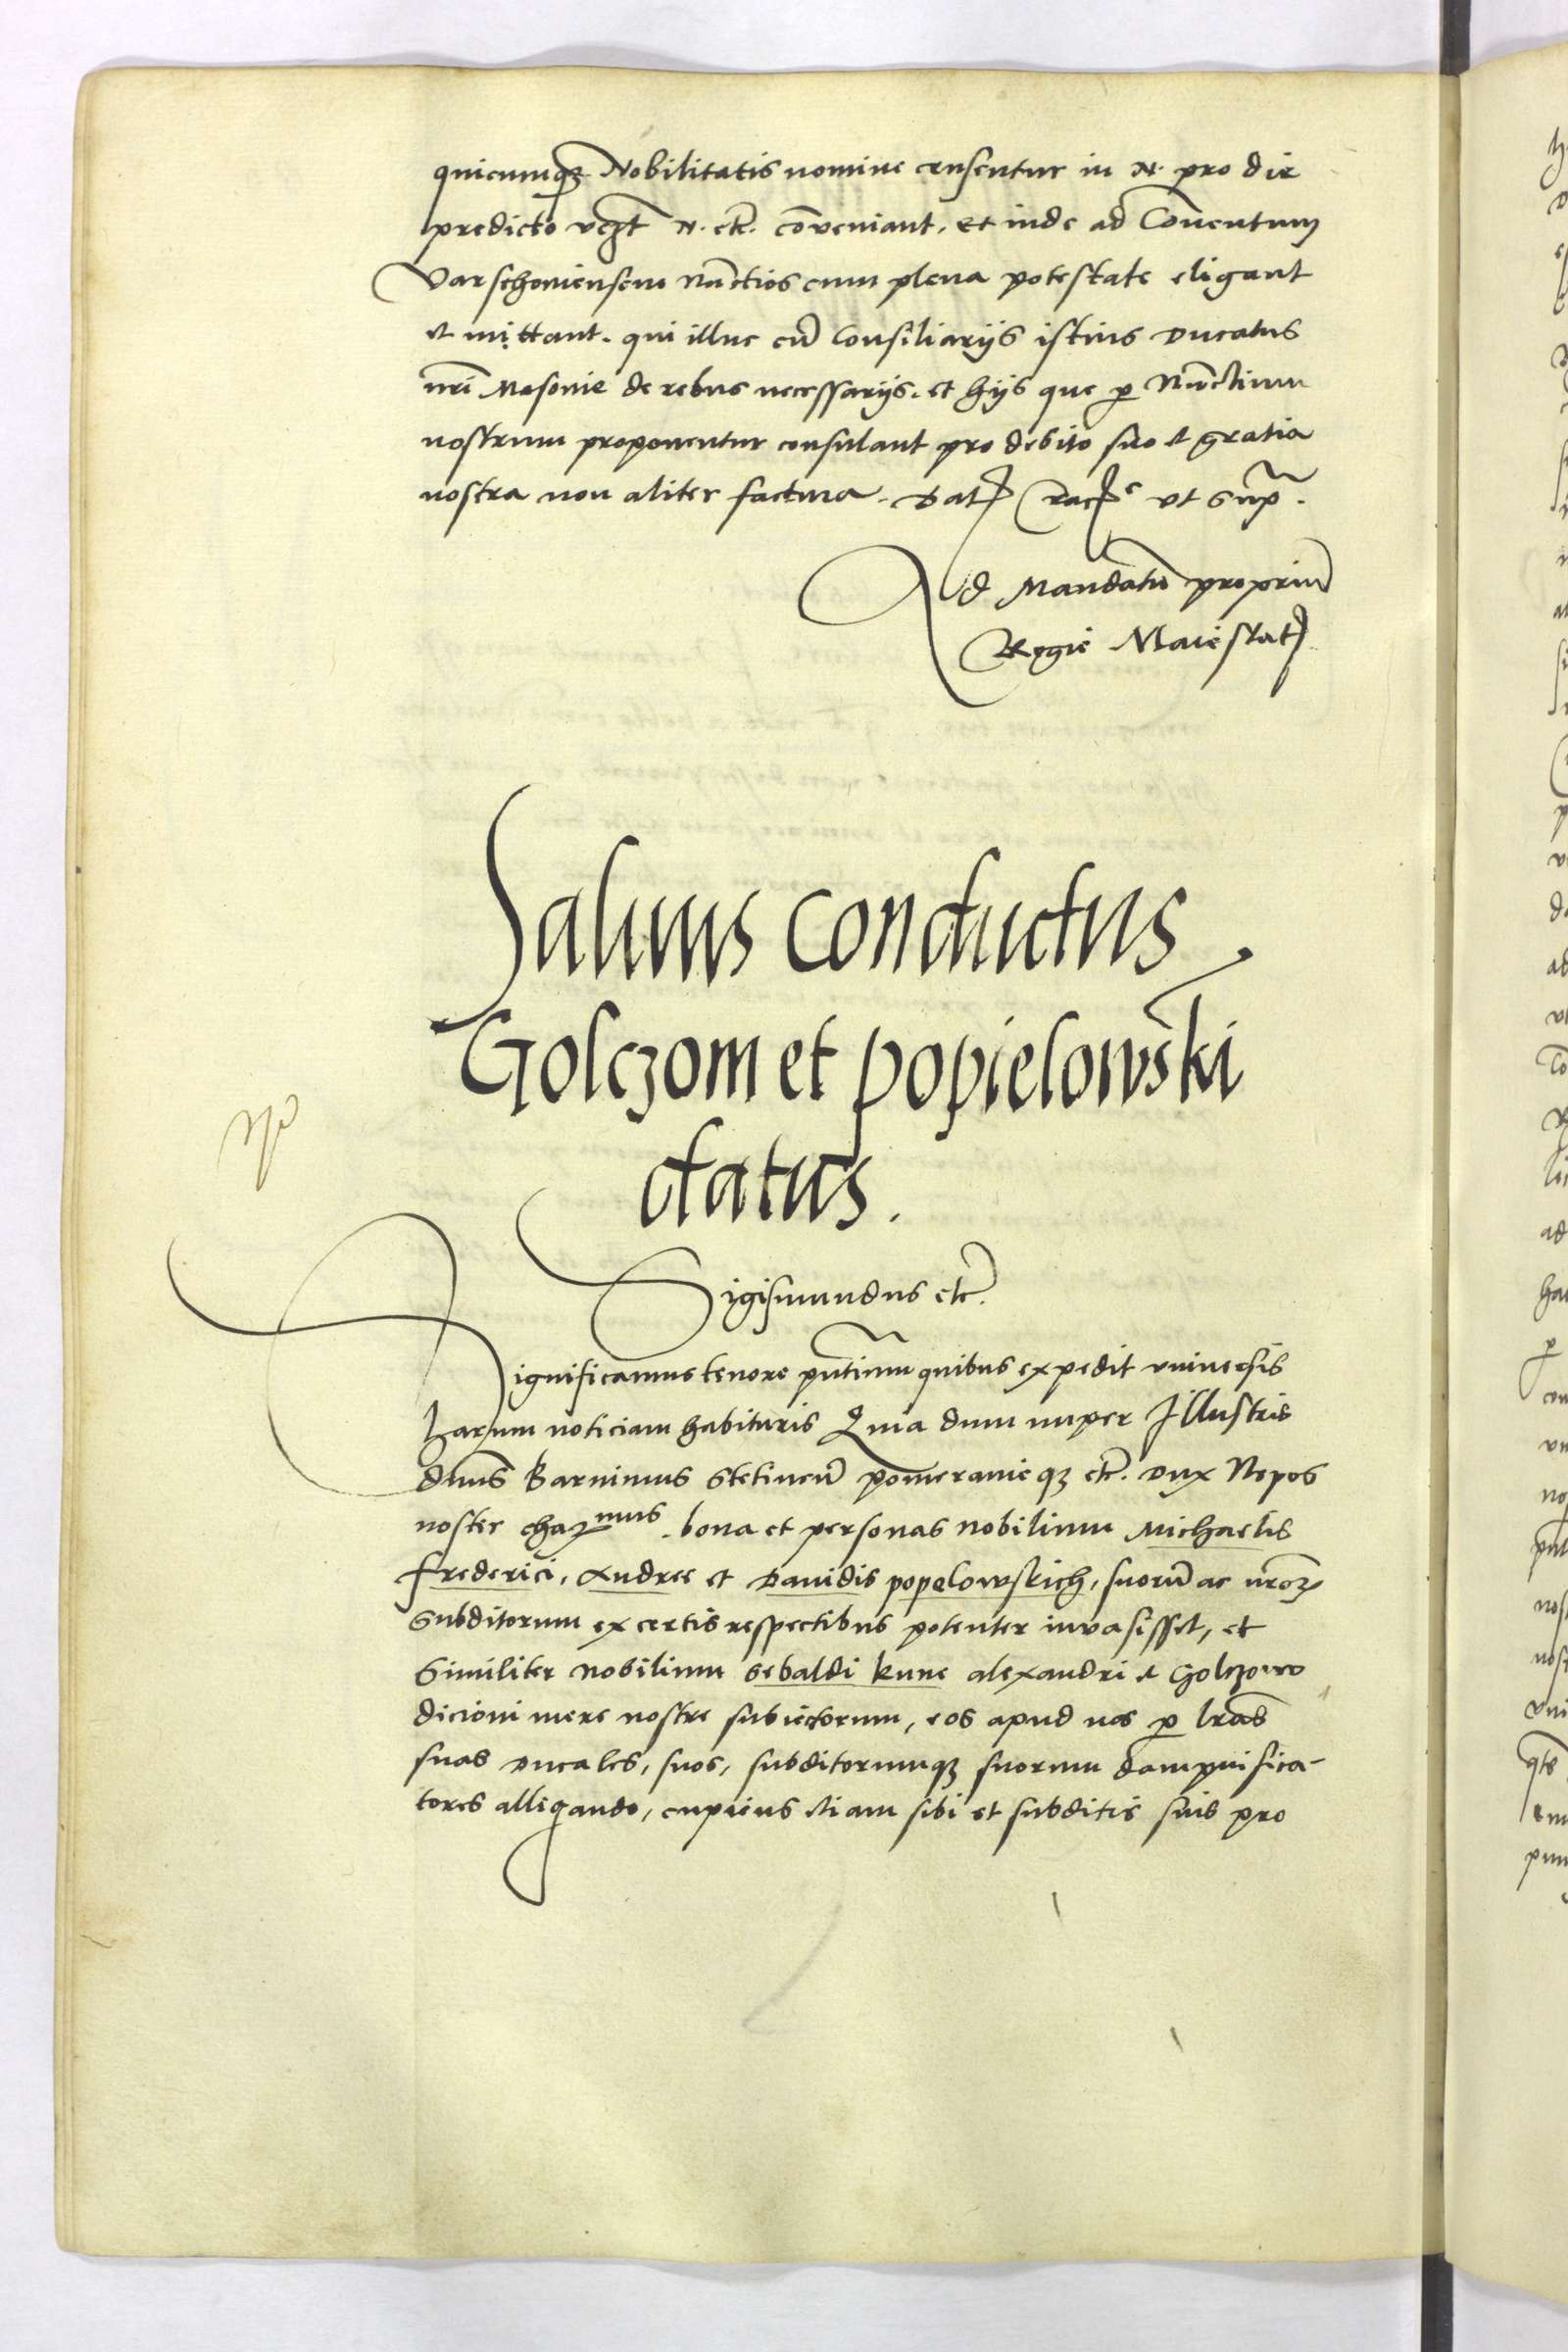 quicumq₃ Nobilitatis nomine censentur in N. pro die
predicto vcz̄t N. etc. cōveniant. et inde ad Cōuentum
Varschouiensem Nūctios cum plena potestate eligant
et mittant. qui illuc cū Consiliarijs istius Ducatus
nr̄i Masouie de rebus necessarijs. et hijs que p̱ Nūctium
nostrum proponentur consulant pro debito suo et gratia
nostra non aliter factura. Dat̄ Crac̄e vt sup̄.
Ad Mandatū propriū
Regie Maiestat̄
Saluus conductus
Golczom et popielowski
datus.
Sigismundus etc.
Significamus tenore pn̄tium quibus expedit vniuersis
harum noticiam habituris Quia dum nuper Illustris
dn̄us Barnimus Stetinen̄ Pomeranieq₃ etc. Dux Nepos
noster char̄mus. bona et personas nobilium Michaelis
Frederici, Andree et Dauidis popelowskich, suorū ac nr̄oꝝ
subditorum ex certis respectibus potenter invasisset, et
Similiter nobilium Sebaldi kune alexandri et Golczowo
dicioni mere nostre subiectorum, eos apud nos p̱ lr̄as
suas Ducales, suos, subditorumq₃ suorum dampnifica-
tores alligando, cupiens etiam sibi et subditis suis pro